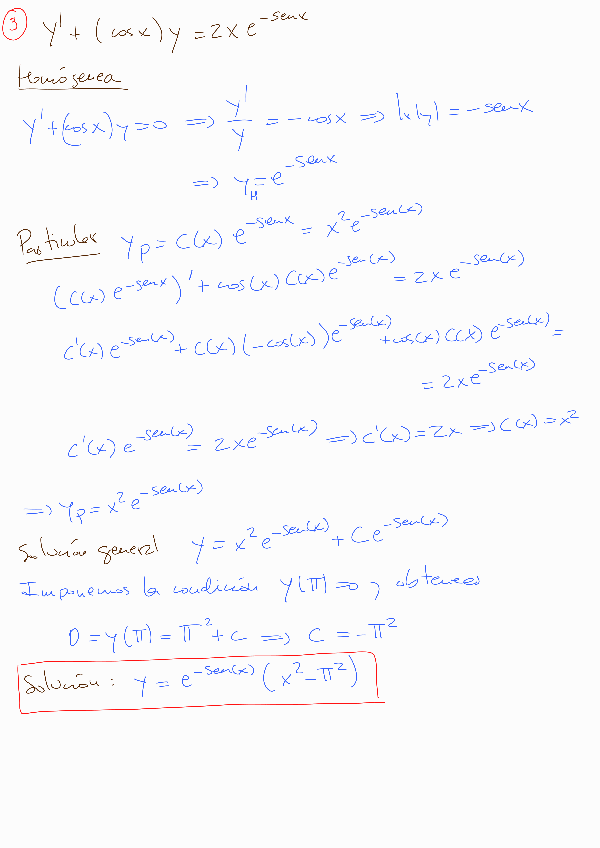 3 y' + (cos x) y = 2x e^{-sen x}
Homógenea
y' + (cos x) y = 0 ⇒ y'/y = -cos x ⇒ ln|y| = -sen x
⇒ y_H = e^{-sen x}
Particular y_p = C(x) e^{-sen x} = x² e^{-sen(x)}
(C(x) e^{-sen x})' + cos(x) C(x) e^{-sen(x)} = 2x e^{-sen(x)}
C'(x) e^{-sen(x)} + C(x) (-cos(x)) e^{-sen(x)} + cos(x) C(x) e^{-sen(x)} =
= 2x e^{-sen(x)}
C'(x) e^{-sen(x)} = 2x e^{-sen(x)} ⇒ C'(x) = 2x ⇒ C(x) = x²
⇒ y_p = x² e^{-sen(x)}
Solución general y = x² e^{-sen(x)} + C e^{-sen(x)}
Imponemos la condición y(π) = 0, obtenemos
0 = y(π) = π² + C ⇒ C = -π²
Solución: y = e^{-sen(x)} (x² - π²)